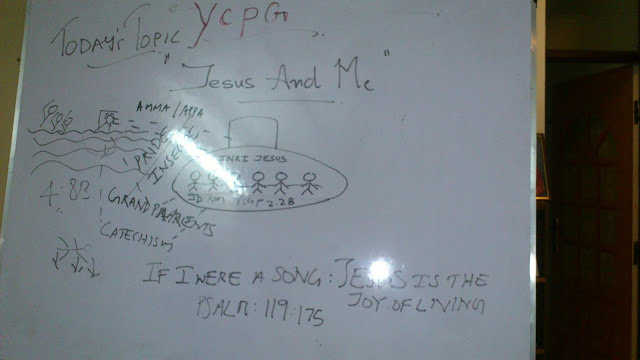 YCPG
TODAY'S TOPIC
"JESUS AND ME"
AMMA/APPA
PRIDE
INRI JESUS
4:8B
GRANDPARENTS
CATECHISM
IF I WERE A SONG: JESUS IS THE
JOY OF LIVING
PSALM: 119:175